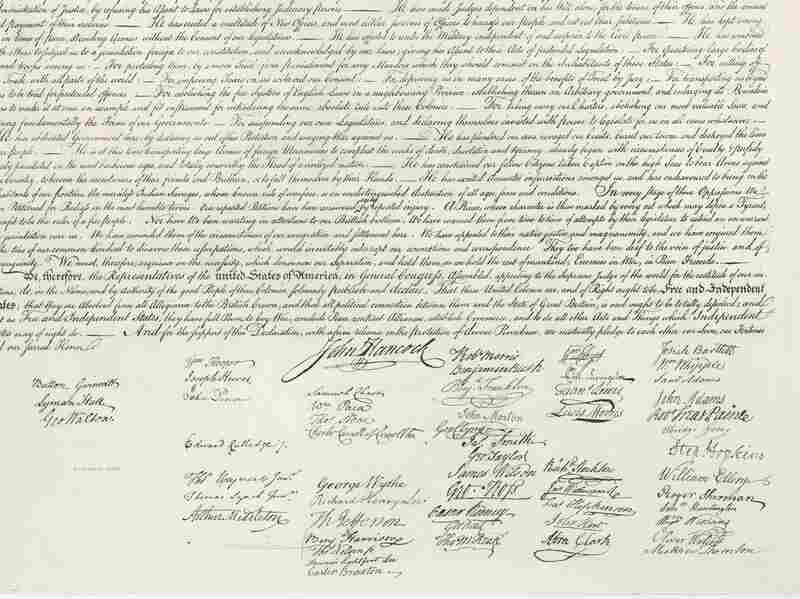 ministration of Justice, by refusing his Assent to Laws for establishing Judiciary powers. — He has made Judges dependent on his Will alone, for the tenure of their offices, and the amount
and payment of their salaries. — He has erected a multitude of New Offices, and sent hither swarms of Officers to harrass our people, and eat out their substance. — He has kept among
in times of peace, Standing Armies without the Consent of our legislatures. — He has affected to render the Military independent of and superior to the Civil power. — He has combined
with others to subject us to a jurisdiction foreign to our constitution, and unacknowledged by our laws; giving his Assent to their Acts of pretended Legislation: — For Quartering large bodies of
armed troops among us: — For protecting them, by a mock Trial, from punishment for any Murders which they should commit on the Inhabitants of these States: — For cutting off
Trade with all parts of the world: — For imposing Taxes on us without our Consent: — For depriving us in many cases, of the benefits of Trial by Jury: — For transporting us beyond
to be tried for pretended offences — For abolishing the free System of English Laws in a neighbouring Province, establishing therein an Arbitrary government, and enlarging its Boundaries
to render it at once an example and fit instrument for introducing the same absolute rule into these Colonies: — For taking away our Charters, abolishing our most valuable Laws, and
fundamentally the Forms of our Governments: — For suspending our own Legislatures, and declaring themselves invested with power to legislate for us in all cases whatsoever. —
He has abdicated Government here, by declaring us out of his Protection and waging War against us. — He has plundered our seas, ravaged our Coasts, burnt our towns, and destroyed the lives
people. — He is at this time transporting large Armies of foreign Mercenaries to compleat the works of death, desolation and tyranny, already begun with circumstances of Cruelty & perfidy
paralleled in the most barbarous ages, and totally unworthy the Head of a civilized nation. — He has constrained our fellow Citizens taken Captive on the high Seas to bear Arms against
Country, to become the executioners of their friends and Brethren, or to fall themselves by their Hands. — He has excited domestic insurrections amongst us, and has endeavoured to bring on the
inhabitants of our frontiers, the merciless Indian Savages, whose known rule of warfare, is an undistinguished destruction of all ages, sexes and conditions. In every stage of these Oppressions We
Petitioned for Redress in the most humble terms: Our repeated Petitions have been answered only by repeated injury. A Prince, whose character is thus marked by every act which may define a Tyrant,
to be the ruler of a free people. Nor have We been wanting in attentions to our Brittish brethren. We have warned them from time to time of attempts by their legislature to extend an unwarrantable
jurisdiction over us. We have reminded them of the circumstances of our emigration and settlement here. We have appealed to their native justice and magnanimity, and we have conjured them
the ties of our common kindred to disavow these usurpations, which, would inevitably interrupt our connections and correspondence. They too have been deaf to the voice of justice and of
We must, therefore, acquiesce in the necessity, which denounces our Separation, and hold them, as we hold the rest of mankind, Enemies in War, in Peace Friends. —
We, therefore, the Representatives of the united States of America, in General Congress, Assembled, appealing to the Supreme Judge of the world for the rectitude of our in
do, in the Name, and by Authority of the good People of these Colonies, solemnly publish and declare, That these United Colonies are, and of Right ought to be Free and Independent
States; that they are Absolved from all Allegiance to the British Crown, and that all political connection between them and the State of Great Britain, is and ought to be totally dissolved; and
as Free and Independent States, they have full Power to levy War, conclude Peace, contract Alliances, establish Commerce, and to do all other Acts and Things which Independent
may of right do. — And for the support of this Declaration, with a firm reliance on the protection of divine Providence, we mutually pledge to each other our Lives, our Fortunes
and our sacred Honor.
Button Gwinnett
Lyman Hall
Geo Walton
Wm Hooper
Joseph Hewes
John Penn
Edward Rutledge
Thos Heyward Junr
Thomas Lynch Junr
Arthur Middleton
John Hancock
Samuel Chase
Wm Paca
Thos Stone
Charles Carroll of Carrollton
George Wythe
Richard Henry Lee
Th Jefferson
Benj Harrison
Thos Nelson jr
Francis Lightfoot Lee
Carter Braxton
Robt Morris
Benjamin Rush
Benj Franklin
John Morton
Geo Clymer
Jas Smith
Geo Taylor
James Wilson
Geo Ross
Caesar Rodney
Geo Read
Tho M:Kean
Wm Floyd
Phil Livingston
Frans Lewis
Lewis Morris
Richd Stockton
Jno Witherspoon
Fras Hopkinson
John Hart
Abra Clark
Josiah Bartlett
Wm Whipple
Saml Adams
John Adams
Robt Treat Paine
Elbridge Gerry
Step Hopkins
William Ellery
Roger Sherman
Saml Huntington
Wm Williams
Oliver Wolcott
Matthew Thornton